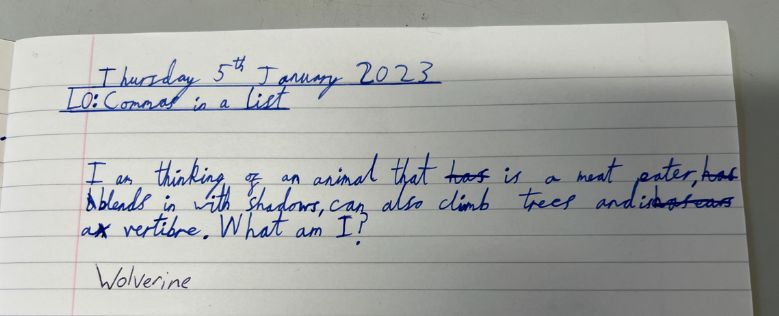 Thursday 5th January 2023
LO: Commas in a list
I am thinking of an animal that has is a meat eater, has
blends in with shadows, can also climb trees and is has ears
a vertibre. What am I?
Wolverine